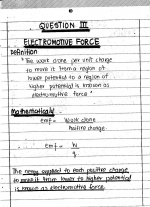 QUESTION III
ELECTROMOTIVE FORCE
Definition
"The work done per unit charge
to move it from a region of
lower potential to a region of
higher potential is known as
electromotive force"
Mathematically
emf = Work done
Positive charge
emf = W
q
The energy supplied to each positive charge
to move it from lower to higher potential
is known as electromotive force.